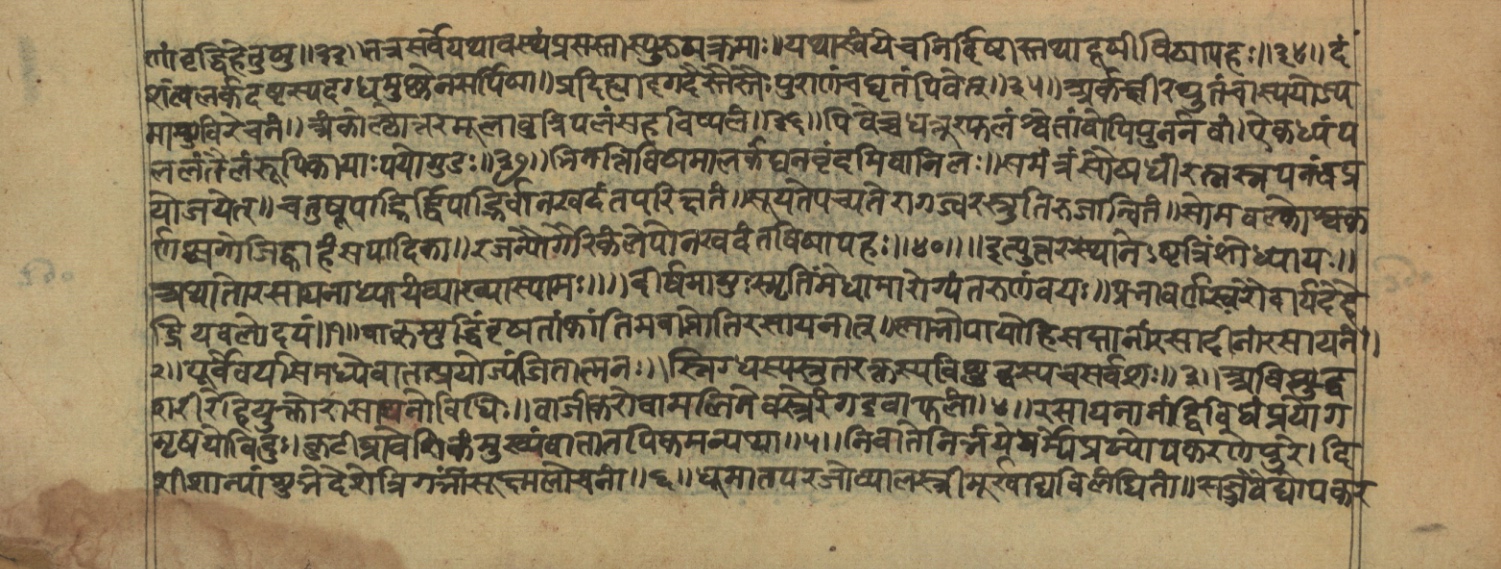 णां वृद्धिहेतुषु॥३३॥ तत्र सर्वे यथावस्थं प्रसक्ता स्युरुपक्रमाः॥ यथास्वं ये च निर्दिष्टास्तथा दूषीविषापहः॥३४॥ दं
शं त्वलर्कदष्टस्य दग्धमुष्णेन सर्पिषा॥ प्रदिह्यादगदैस्तैस्तैः पुराणं च घृतं पिवेत्॥३५॥ अर्कक्षीरयुतं चास्य योज्य
माशु विरेचनं॥ अंकोल्लोत्तरमूलांवु त्रिपलं सहविष्पलं॥३६॥ पिवेच्च धत्तुरफलं श्वेतां वापि पुनर्नवां। ऐकध्यं प
ललं तैलं रूपिकायाः पयो गुडः॥३७॥ भिनत्ति विषमालर्कं घनवृंदमिवानिलः॥ समंत्रं सौषधीरत्नस्नपनं च प्र
योजयेत्॥ चतुष्पाद्भिर्द्विपाद्भिर्वा नखदंतपरिक्षतं॥ सूयते पच्यते रागज्वरस्रुतिरुजान्वितं॥ सोमवल्कोश्वक
र्णश्च गोजिह्वा हंसपादिका॥ रजन्यौ गैरिकं लेपो नखदंतविषापहः॥४०॥॥ इत्युत्तरस्थाने ऽष्टत्रिंशोध्यायः॥
अथातो रसायनाध्यायं व्याख्यास्यामः॥॥ दीर्घमायुः स्मृतिं मेधामारोग्यं तरुणं वयः॥ प्रभावर्णस्वरौदार्यं देहें
द्रियवलोदयं॥१॥ वाक्सिद्धिं वृषतां कांतिमवाप्नोति रसायनात्॥ लाभोपायो हि सप्तानां रसादीनां रसायनं॥
२॥ पूर्वे वयसि मध्ये वा तत्प्रयोज्यं जितात्मनः॥ स्निग्धस्य स्रुतरक्तस्य विशुद्धस्य च सर्वशः॥३॥ अविशुद्धे
शरीरे हि युक्तो रासायनो विधिः॥ वाजीकरो वा मलिने वस्त्रे रंग इवाफलः॥४॥ रसायनानां द्विविधं प्रयोग
मृषयो विदुः। कुटीप्रावेशिकं मुख्यं वातातपिकमन्यथा॥५॥ निवाते निर्भये हर्म्ये प्राप्योपकरणे पुरे। दि
शीशान्यां शुभे देशे त्रिगर्भां सूक्ष्मलोचनां॥६॥ धूमातपरजोव्यालस्त्रीमूर्खाद्यविलंघितां॥ सज्जवैद्योपकर